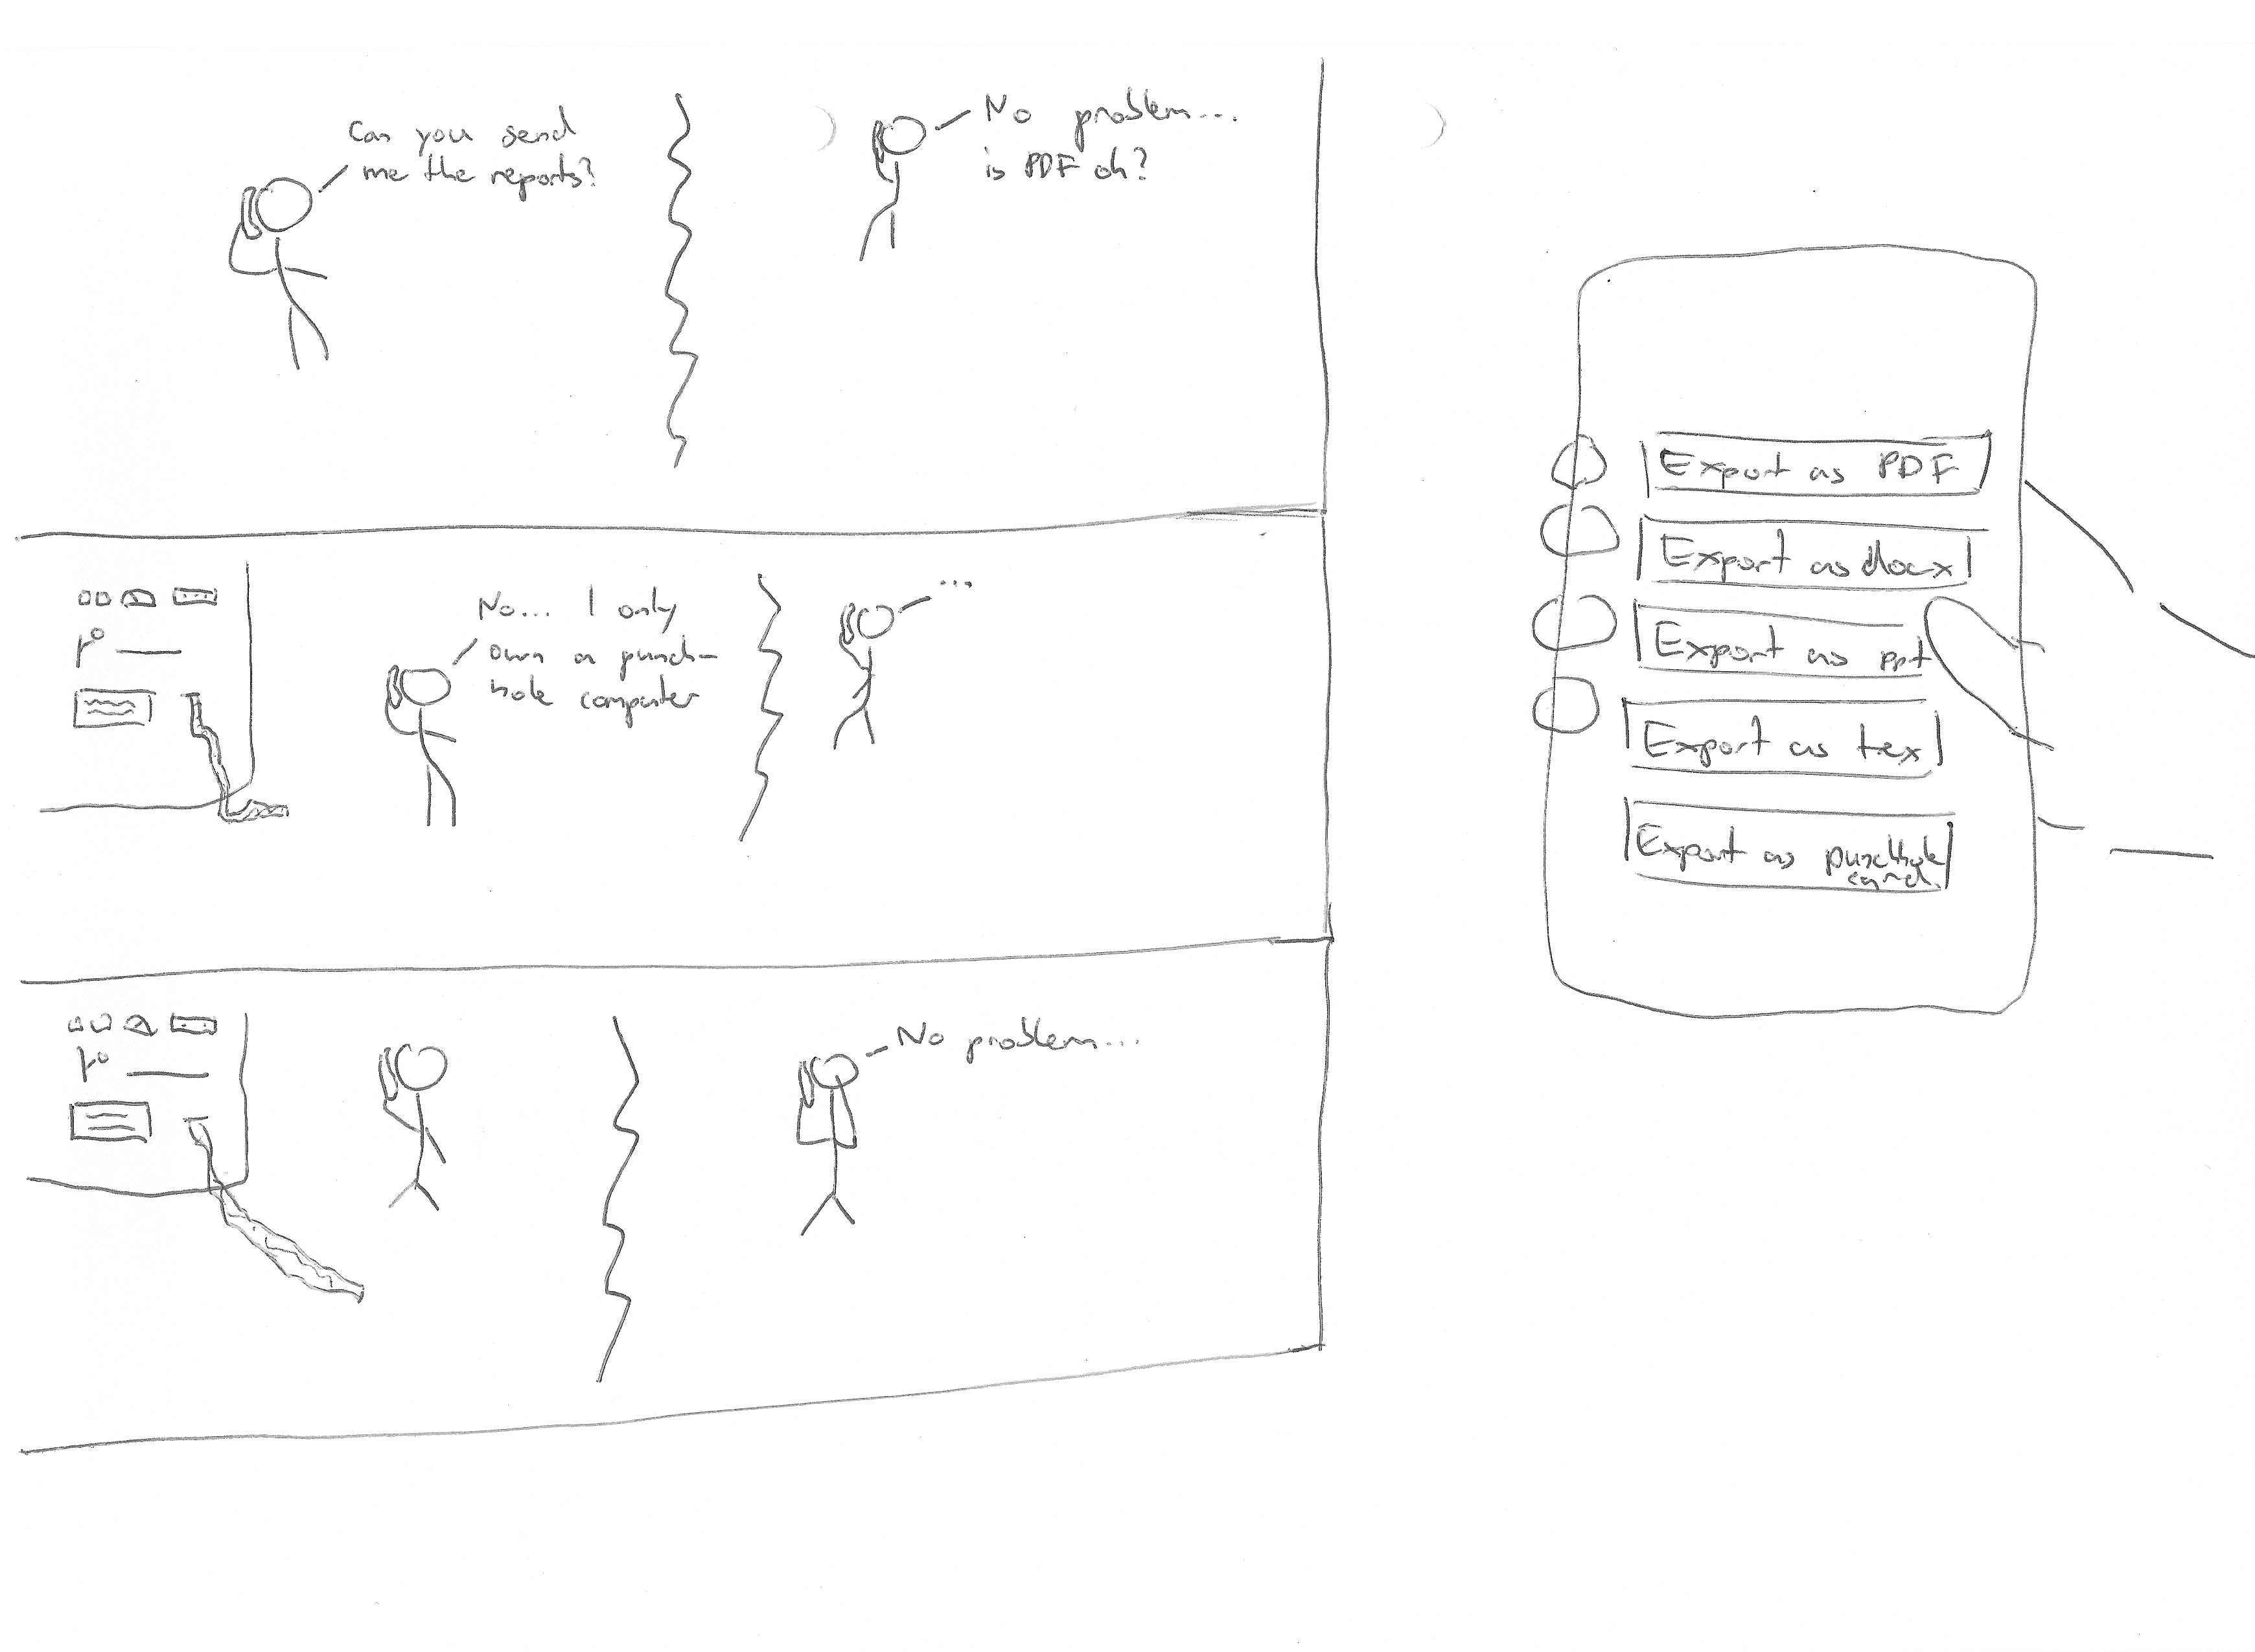 Can you send
me the reports?
No problem...
is PDF ok?
No... I only
own a punch-
hole computer
...
No problem...
Export as PDF
Export as docx
Export as ppt
Export as tex
Export as punchhole
card